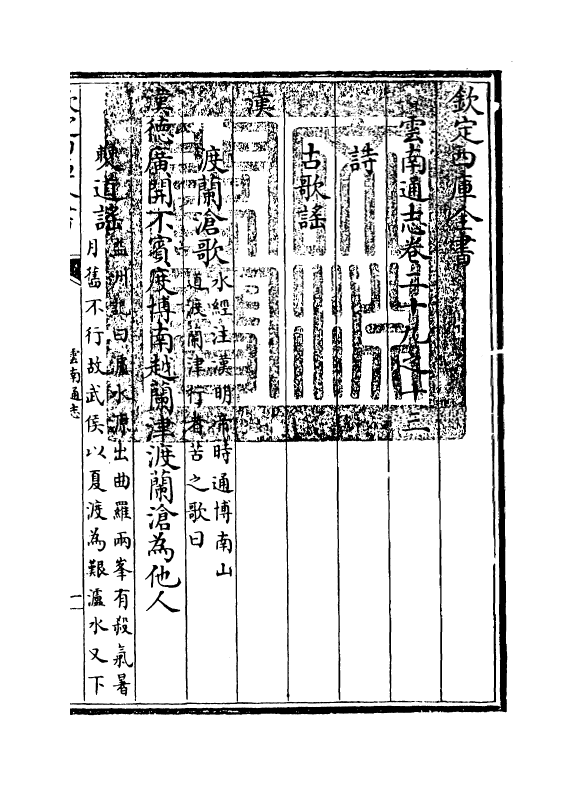 欽定四庫全書
雲南通志卷二十九之十三
詩
古歌謠
漢
渡蘭滄歌
水經注漢明帝時通博南山
道渡蘭津行者苦之歌曰
漢德廣開不賓度博南越蘭津渡蘭滄為他人
道謠
益州記曰瀘水源出曲羅兩峯有殺氣暑
月舊不行故武侯以夏渡為艱瀘水又下
雲南通志
一